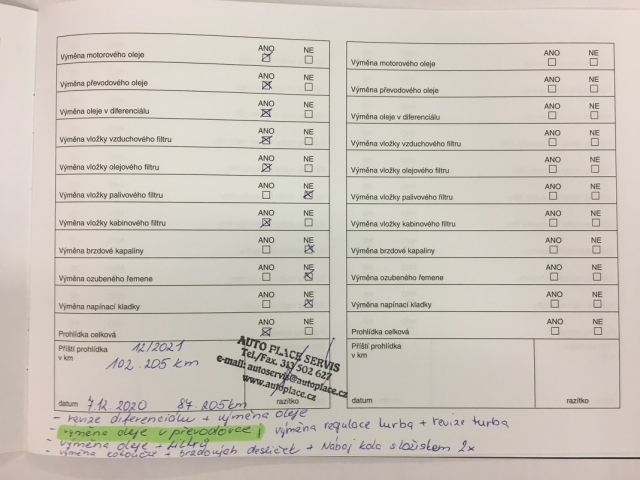 ANO NE
Výměna motorového oleje
ANO NE
Výměna převodového oleje
ANO NE
Výměna oleje v diferenciálu
ANO NE
Výměna vložky vzduchového filtru
ANO NE
Výměna vložky olejového filtru
ANO NE
Výměna vložky palivového filtru
ANO NE
Výměna vložky kabinového filtru
ANO NE
Výměna brzdové kapaliny
ANO NE
Výměna ozubeného řemene
ANO NE
Výměna napínací kladky
ANO NE
Prohlídka celková
Příští prohlídka 12/2021
v km 102.205 km
AUTO PLACE SERVIS
Tel./Fax. 313 502 627
e-mail: autoservis@autoplace.cz
www.autoplace.cz
datum 7.12.2020 87.205km razítko
ANO NE
Výměna motorového oleje
ANO NE
Výměna převodového oleje
ANO NE
Výměna oleje v diferenciálu
ANO NE
Výměna vložky vzduchového filtru
ANO NE
Výměna vložky olejového filtru
ANO NE
Výměna vložky palivového filtru
ANO NE
Výměna vložky kabinového filtru
ANO NE
Výměna brzdové kapaliny
ANO NE
Výměna ozubeného řemene
ANO NE
Výměna napínací kladky
ANO NE
Prohlídka celková
Příští prohlídka
v km
datum razítko
- revize diferenciálu + výměna oleje
- výměna oleje v převodovce, výměna regulace turba + revize turba
- výměna oleje + filtrů
- výměna kotoučů + brzdových destiček + Náboj kola s ložiskem 2x